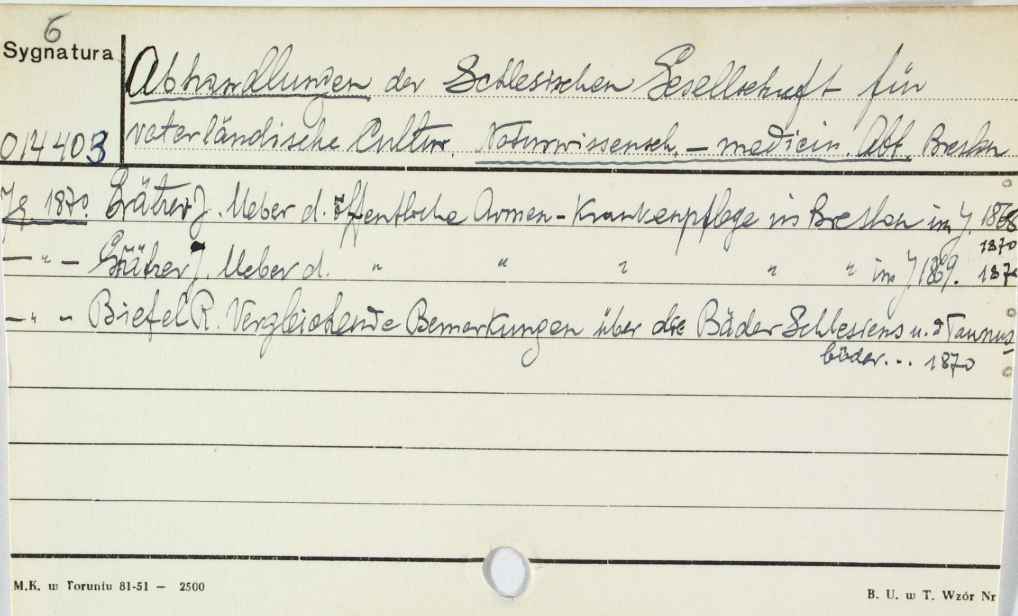 6
Sygnatura
Abhandlungen der Schlesischen Gesellschaft für
014403 vaterländische Cultur. Naturwissensch. - medicin. Abt. Breslau
Jg. 1870. Grätzer J. Ueber d. öffentliche Armen-Krankenpflege in Breslau im J. 1868
1870
— " — Grätzer J. Ueber d. " " " " " im J. 1869. 1870
— " — Biefel R. Vergleichende Bemerkungen über die Bäder Schlesiens u. d Taunus
bäder... 1870
M.K. w Toruniu 81-51 — 2500
B. U. w T. Wzór Nr